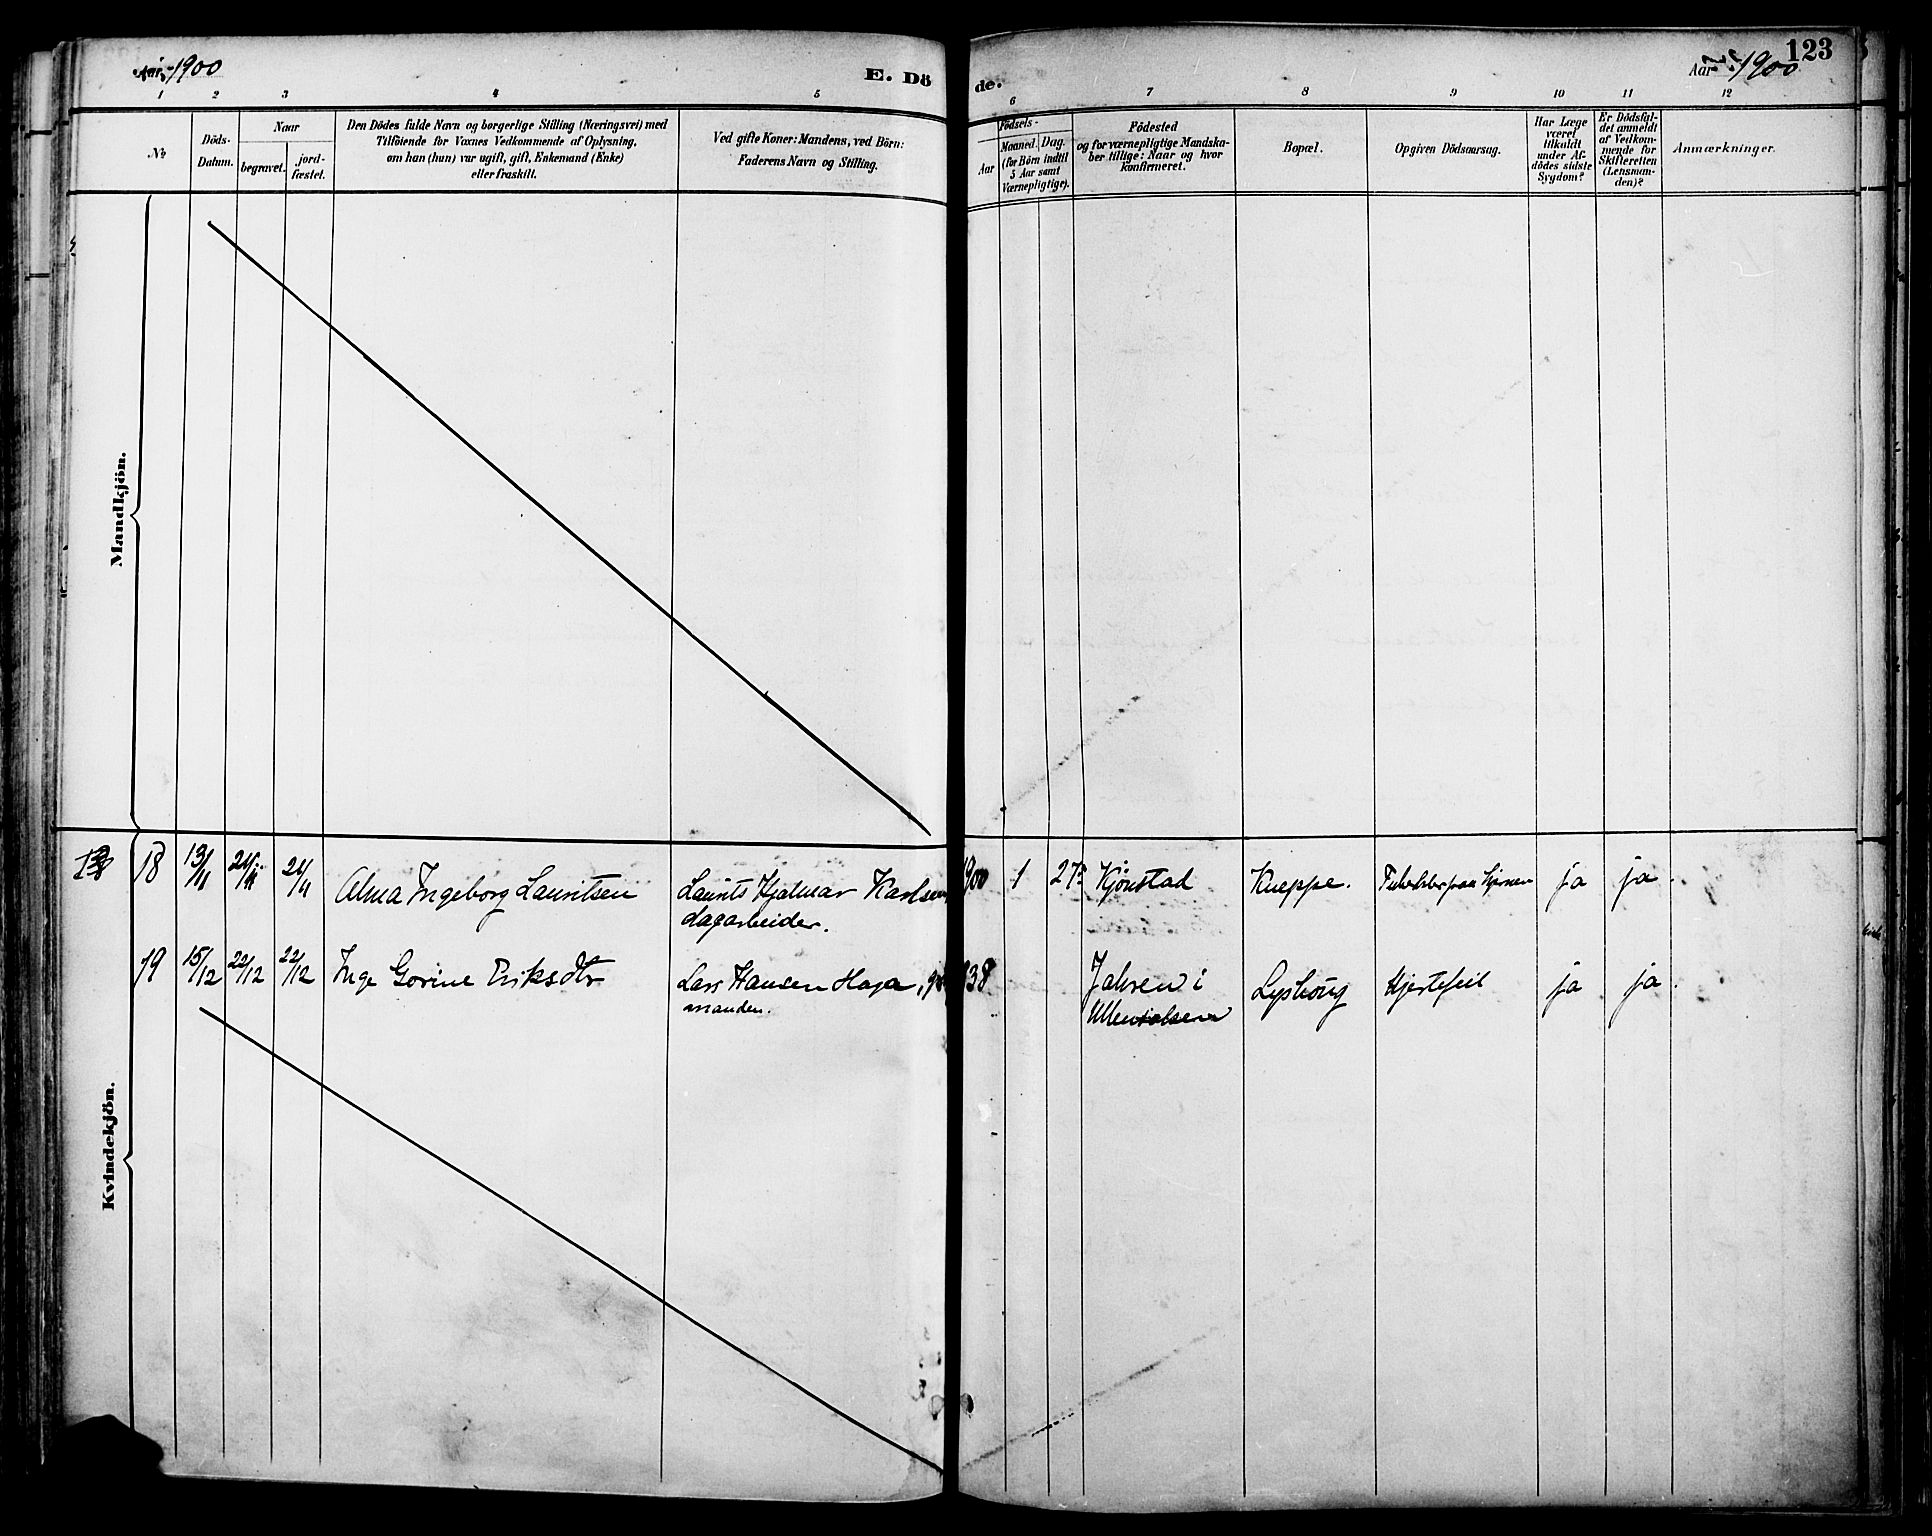 Aar 1900
E. Dö
de.
Aar 1900
123
1 2 3 4 5
6 7 8 9 10 11 12
No
Döds-
Datum.
Naar
begravet.
jord-
fæstet.
Den Dödes fulde Navn og borgerlige Stilling (Næringsvei) med
Tilföiende for Voxnes Vedkommende af Oplysning,
om han (hun) var ugift, gift, Enkemand (Enke)
eller fraskilt.
Ved gifte Koner: Mandens, ved Börn:
Faderens Navn og Stilling.
Födsels-
Aar
Maaned.
Dag.
(for Börn indtil
5 Aar samt
Værnepligtige).
Födested
og for værnepligtige Mandska-
ber tillige: Naar og hvor
konfirmeret.
Bopæl.
Opgiven Dödsaarsag.
Har Læge
været
tilkaldt
under Af-
dödes sidste
Sygdom?
Er Dödsfal-
det anmeldt
af Vedkom-
mende for
Skifteretten
(Lensman-
den)?
Anmærkninger.
Mandkjön.
18 13/11 21/11 21/11 Alma Ingeborg Lauritsen Laurits Hjalmar Karlsen 1900 1 27 Kjönstad Kneppe. ja ja.
dagarbeider.
19 15/12 22/12 22/12 Inge Gorine Eriksdtr Lars Hansen Haga, 838 Jahren i Lyshoug Hjertefeil ja ja.
manden.
Kvindekjön.